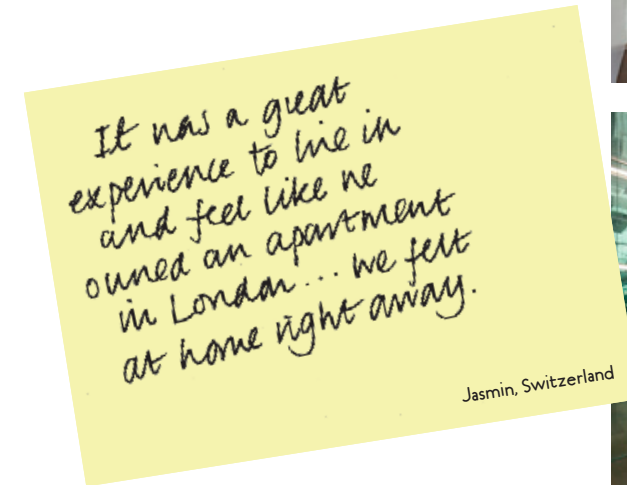 It was a great
experience to live in
and feel like we
owned an apartment
in London... we felt
at home right away.
Jasmin, Switzerland